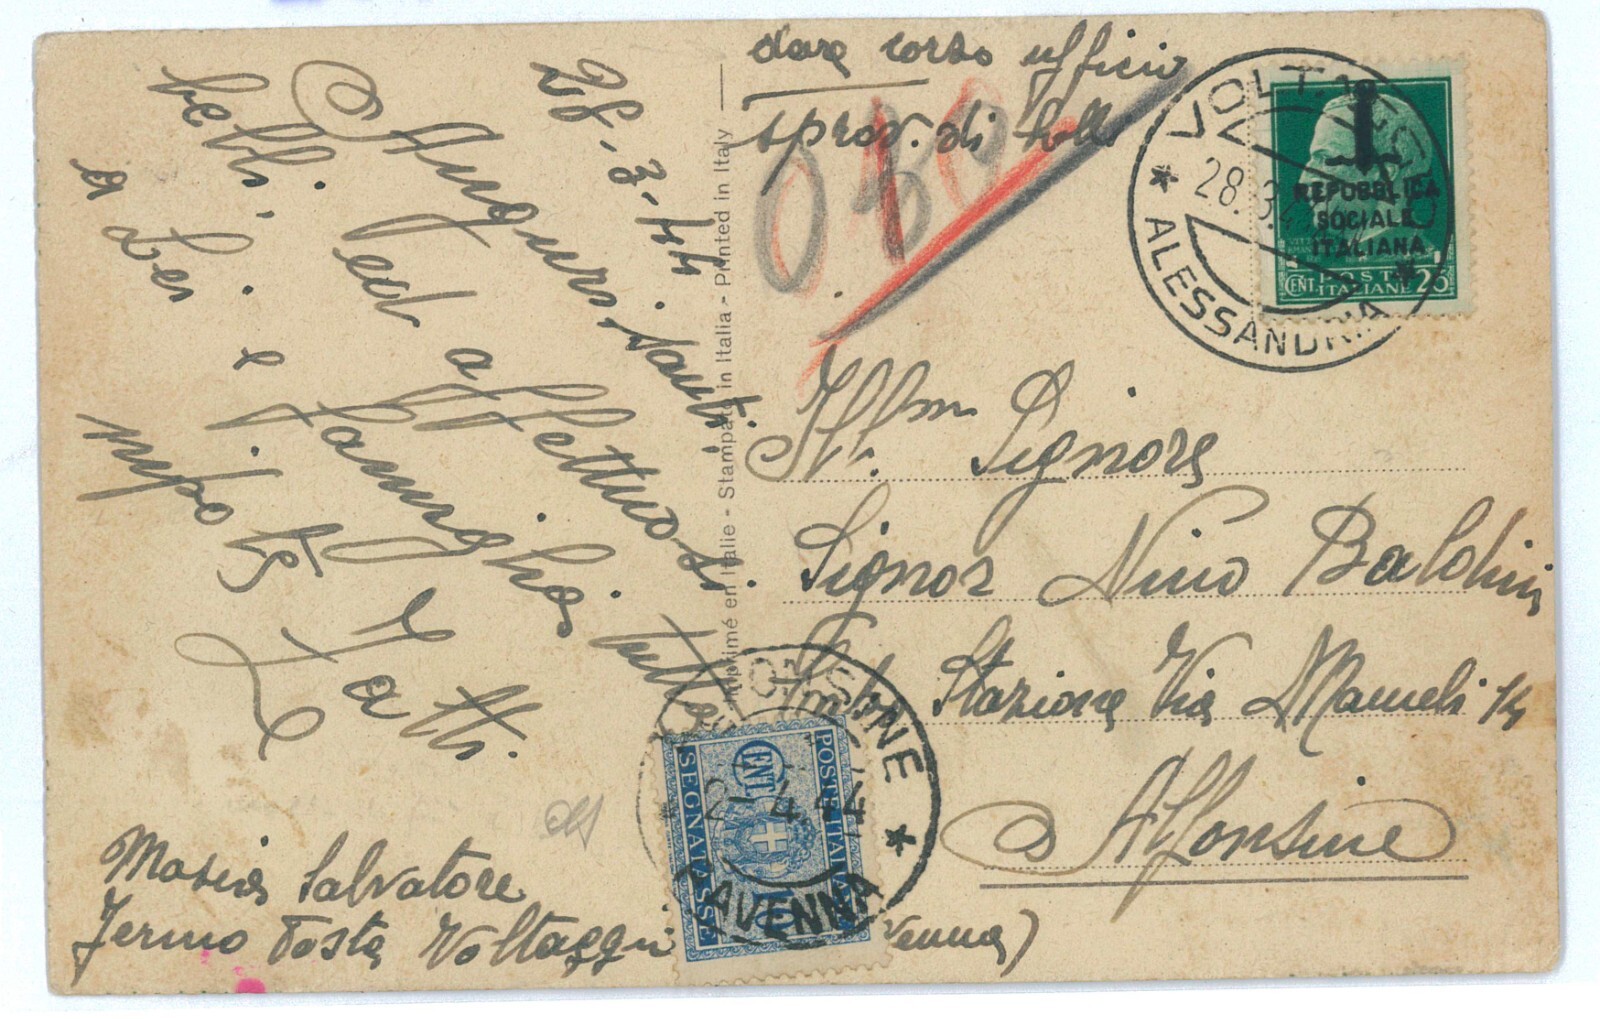 28.3.44
Auguri santi,
belli, ed affettuosi
a Lei e famiglia tutta
nipote Zatti.
Maria Salvatore
Fermo Posta Voltaggio
Imprimé en Italie - Stampato in Italia - Printed in Italy
dare corso ufficio
sprov. di bolli
VOLTAGGIO
28.3.44
ALESSANDRIA
REPUBBLICA
SOCIALE
ITALIANA
POSTE
CENT. ITALIANE 25
Ill.m Signore
Signor Nino Baldini
Stazione Via Mameli 14
Alfonsine
(Ravenna)
ALFONSINE
2-4-44
RAVENNA
POSTE ITALIANE
CENT 10
SEGNATASSE